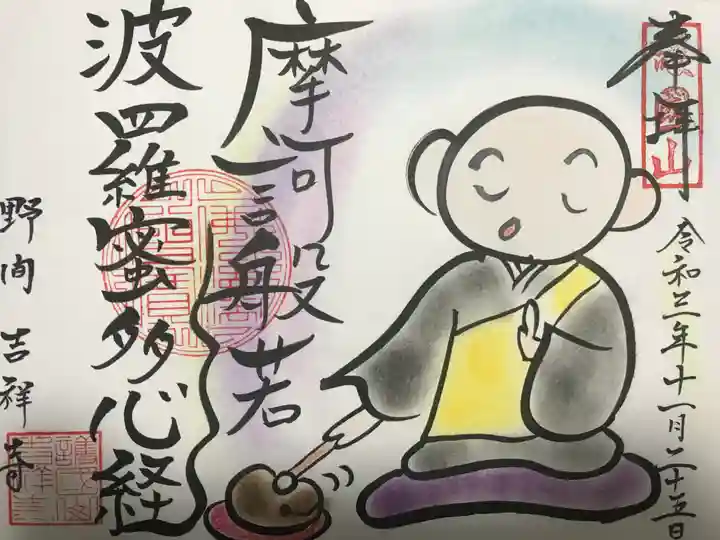 奉拝
令和三年十一月二十五日
摩訶般若
波羅蜜多心経
野間 吉祥寺